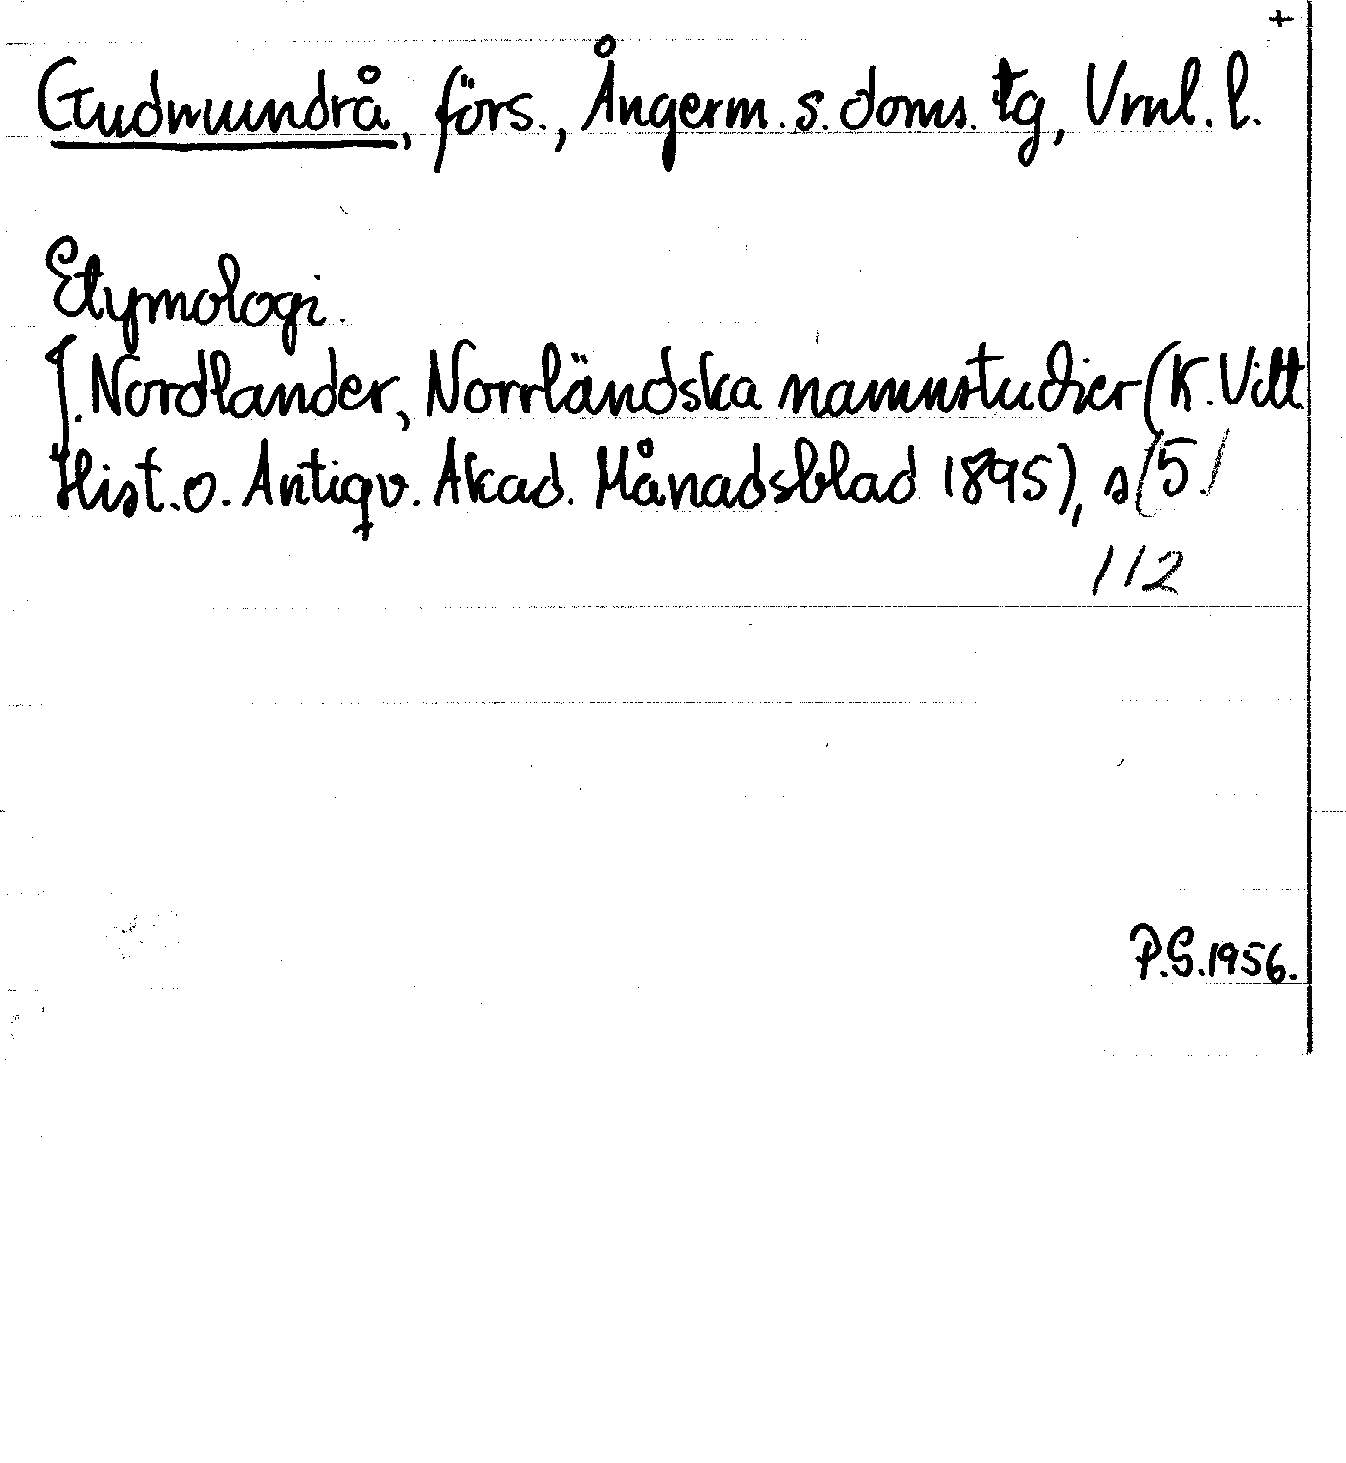 +
Gudmundrå, förs., Ångerm. s. doms. tg, Vrnl. l.
Etymologi.
J. Nordlander, Norrländska namnstudier (K. Vitt.
Hist. o. Antiqv. Akad. Månadsblad 1895), s (5./
112
P.G. 1956.